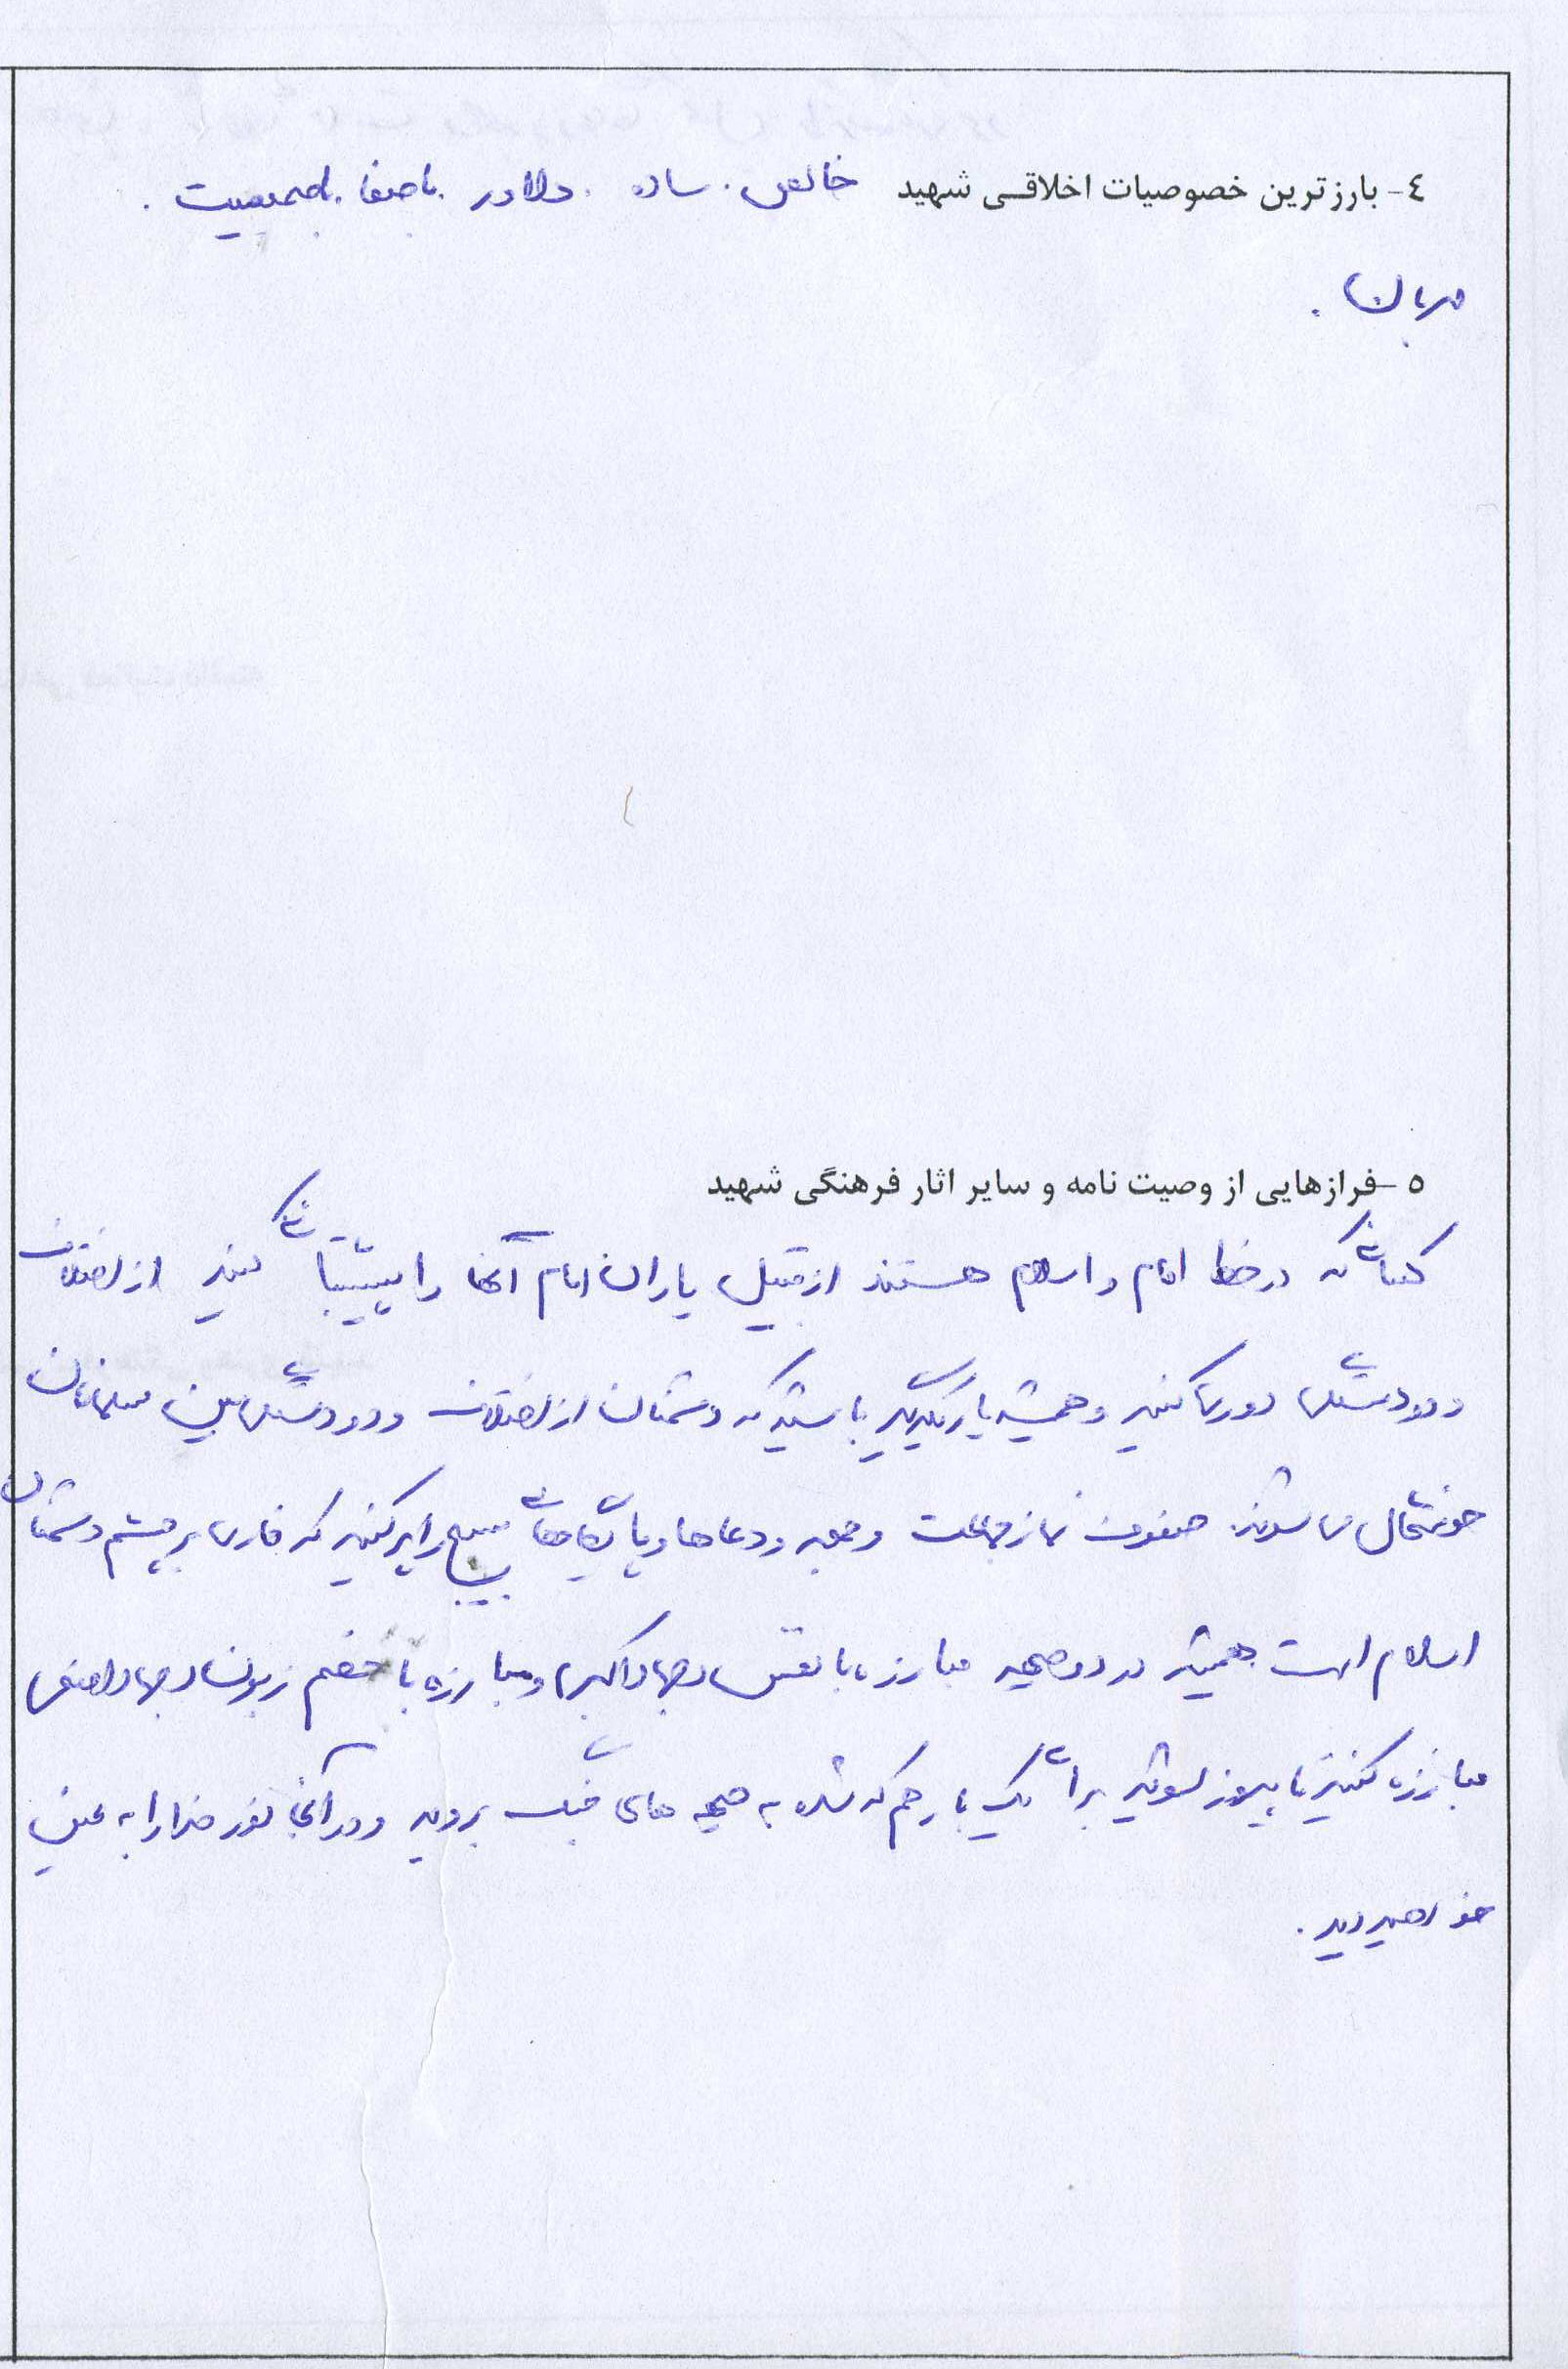 ٤- بارزترین خصوصیات اخلاقی شهید خالص . ساده . دلاور . باصفا . باصمیمیت .
مهربان .
٥ -فرازهایی از وصیت نامه و سایر اثار فرهنگی شهید
کسانی که در خط امام و اسلام هستند از قبیل یاران امام آنها را پشتیبانی کنید از اختلاف
و دودستگی دوری کنید و همیشه یار یکدیگر باشید که دشمنان از اختلاف و دودستگی بین مسلمانان
خوشحال می شوند. صفوف نماز جماعت و جمعه و دعاها و پایگاههای بسیج را پر کنید که خاری بر چشم دشمنان
اسلام است همیشه در دو صحنه مبارزه با نفس (جهاد اکبر) و مبارزه با خصم زبون (جهاد اصغر)
مبارزه کنید تا پیروز شوید برای یک بار هم که شده به صحنه های جنگ بروید و در آنجا نور خدا را به عینی
خواهید دید .